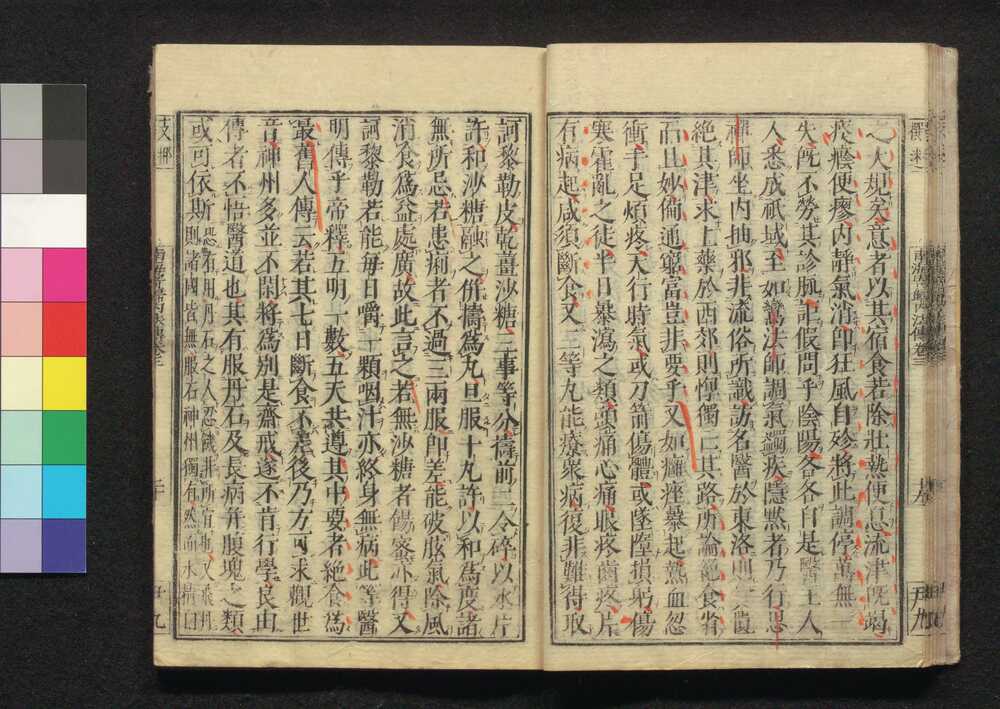 之大規矣意者以其宿食若除壯熱便息流津既竭
痰癊便瘳内靜氣消即狂風自殄將此調停萬無一
失既不勞其診脈詎假問乎陰陽各各自是醫王人
人悉成祇域至如鸞法師調氣蠲疾隱默者乃行思
禪師坐内抽邪非流俗所識訪名醫於東洛則貧匱
絶其津求上藥於西郊則惸獨亡其路所論絶食省
而且妙備通窮富豈非要乎又如癰痤暴起熱血忽
衝手足煩疼天行時氣或刀箭傷體或墜墮損躬傷
寒霍亂之徒半日暴瀉之類頭痛心痛眼疼齒疼片
有病起咸須斷食又三等丸能療衆病復非難得取
訶黎勒皮乾薑沙糖三事等分擣前二令碎以水片
許和沙糖融之併擣爲丸旦服十丸許以和爲度諸
無所忌若患痢者不過三兩服即差能破胘氣除風
消食爲益處廣故此言之若無沙糖者餳蜜亦得又
訶黎勒若能毎日嚼一顆咽汁亦終身無病此等醫
明傳乎帝釋五明一數五天共遵其中要者絶食爲
最舊人傳云若其七日斷食不差後乃方可求觀世
音神州多並不閑將爲別是齋戒遂不肯行學良由
傳者不悟醫道也其有服丹石及長病并腹塊之類
或可依斯恐有用丹石之人忍饑非所宜也又飛丹
則諸國皆無服石神州獨有然而水精白